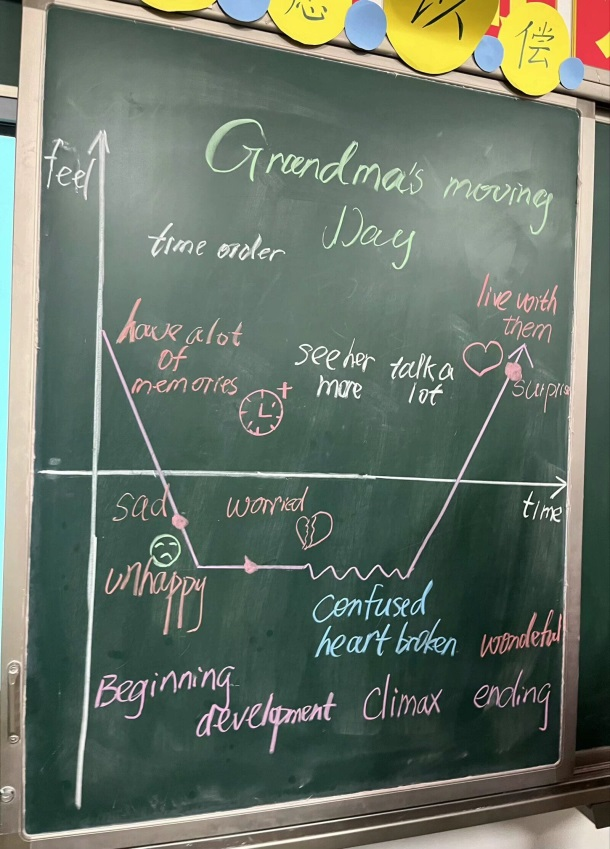 以
偿
feel
Grandma's moving
Day
time order
have a lot
of
memories
see her
more
talk a
lot
live with
them
surprise
time
sad
worried
unhappy
confused
heart broken
wondeful
Beginning
development
climax
ending